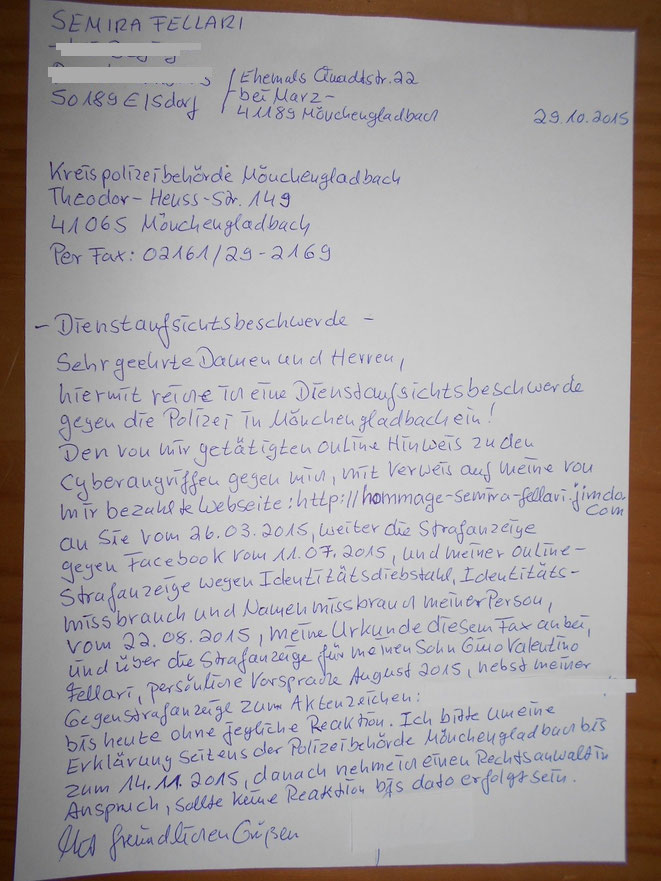 SEMIRA FELLARI
50189 Elsdorf
Ehemals Quadtstr. 22
bei Marz -
41189 Mönchengladbach
29.10.2015
Kreispolizeibehörde Mönchengladbach
Theodor-Heuss-Str. 149
41065 Mönchengladbach
Per Fax: 02161/29-2169
- Dienstaufsichtsbeschwerde -
Sehr geehrte Damen und Herren,
hiermit reiche ich eine Dienstaufsichtsbeschwerde
gegen die Polizei in Mönchengladbach ein!
Den von mir getätigten Online Hinweis zu den
Cyberangriffen gegen mich, mit Verweis auf meine von
mir bezahlte Webseite: http://hommage-semira-fellari.jimdo.
com
an Sie vom 26.03.2015, weiter die Strafanzeige
gegen Facebook vom 11.07.2015, und meiner online-
Strafanzeige wegen Identitätsdiebstahl, Identitäts-
missbrauch und Namenmissbrauch meiner Person,
vom 22.08.2015, meine Urkunde diesem Fax anbei,
und über die Strafanzeige für meinen Sohn Gino Valentino
Fellari, persönliche Vorsprache August 2015, nebst meiner
Gegenstrafanzeige zum Aktenzeichen:
bis heute ohne jegliche Reaktion. Ich bitte um eine
Erklärung seitens der Polizeibehörde Mönchengladbach bis
zum 14.11.2015, danach nehme ich einen Rechtsanwalt in
Anspruch, sollte keine Reaktion bis dato erfolgt sein.
Mit freundlichen Grüßen